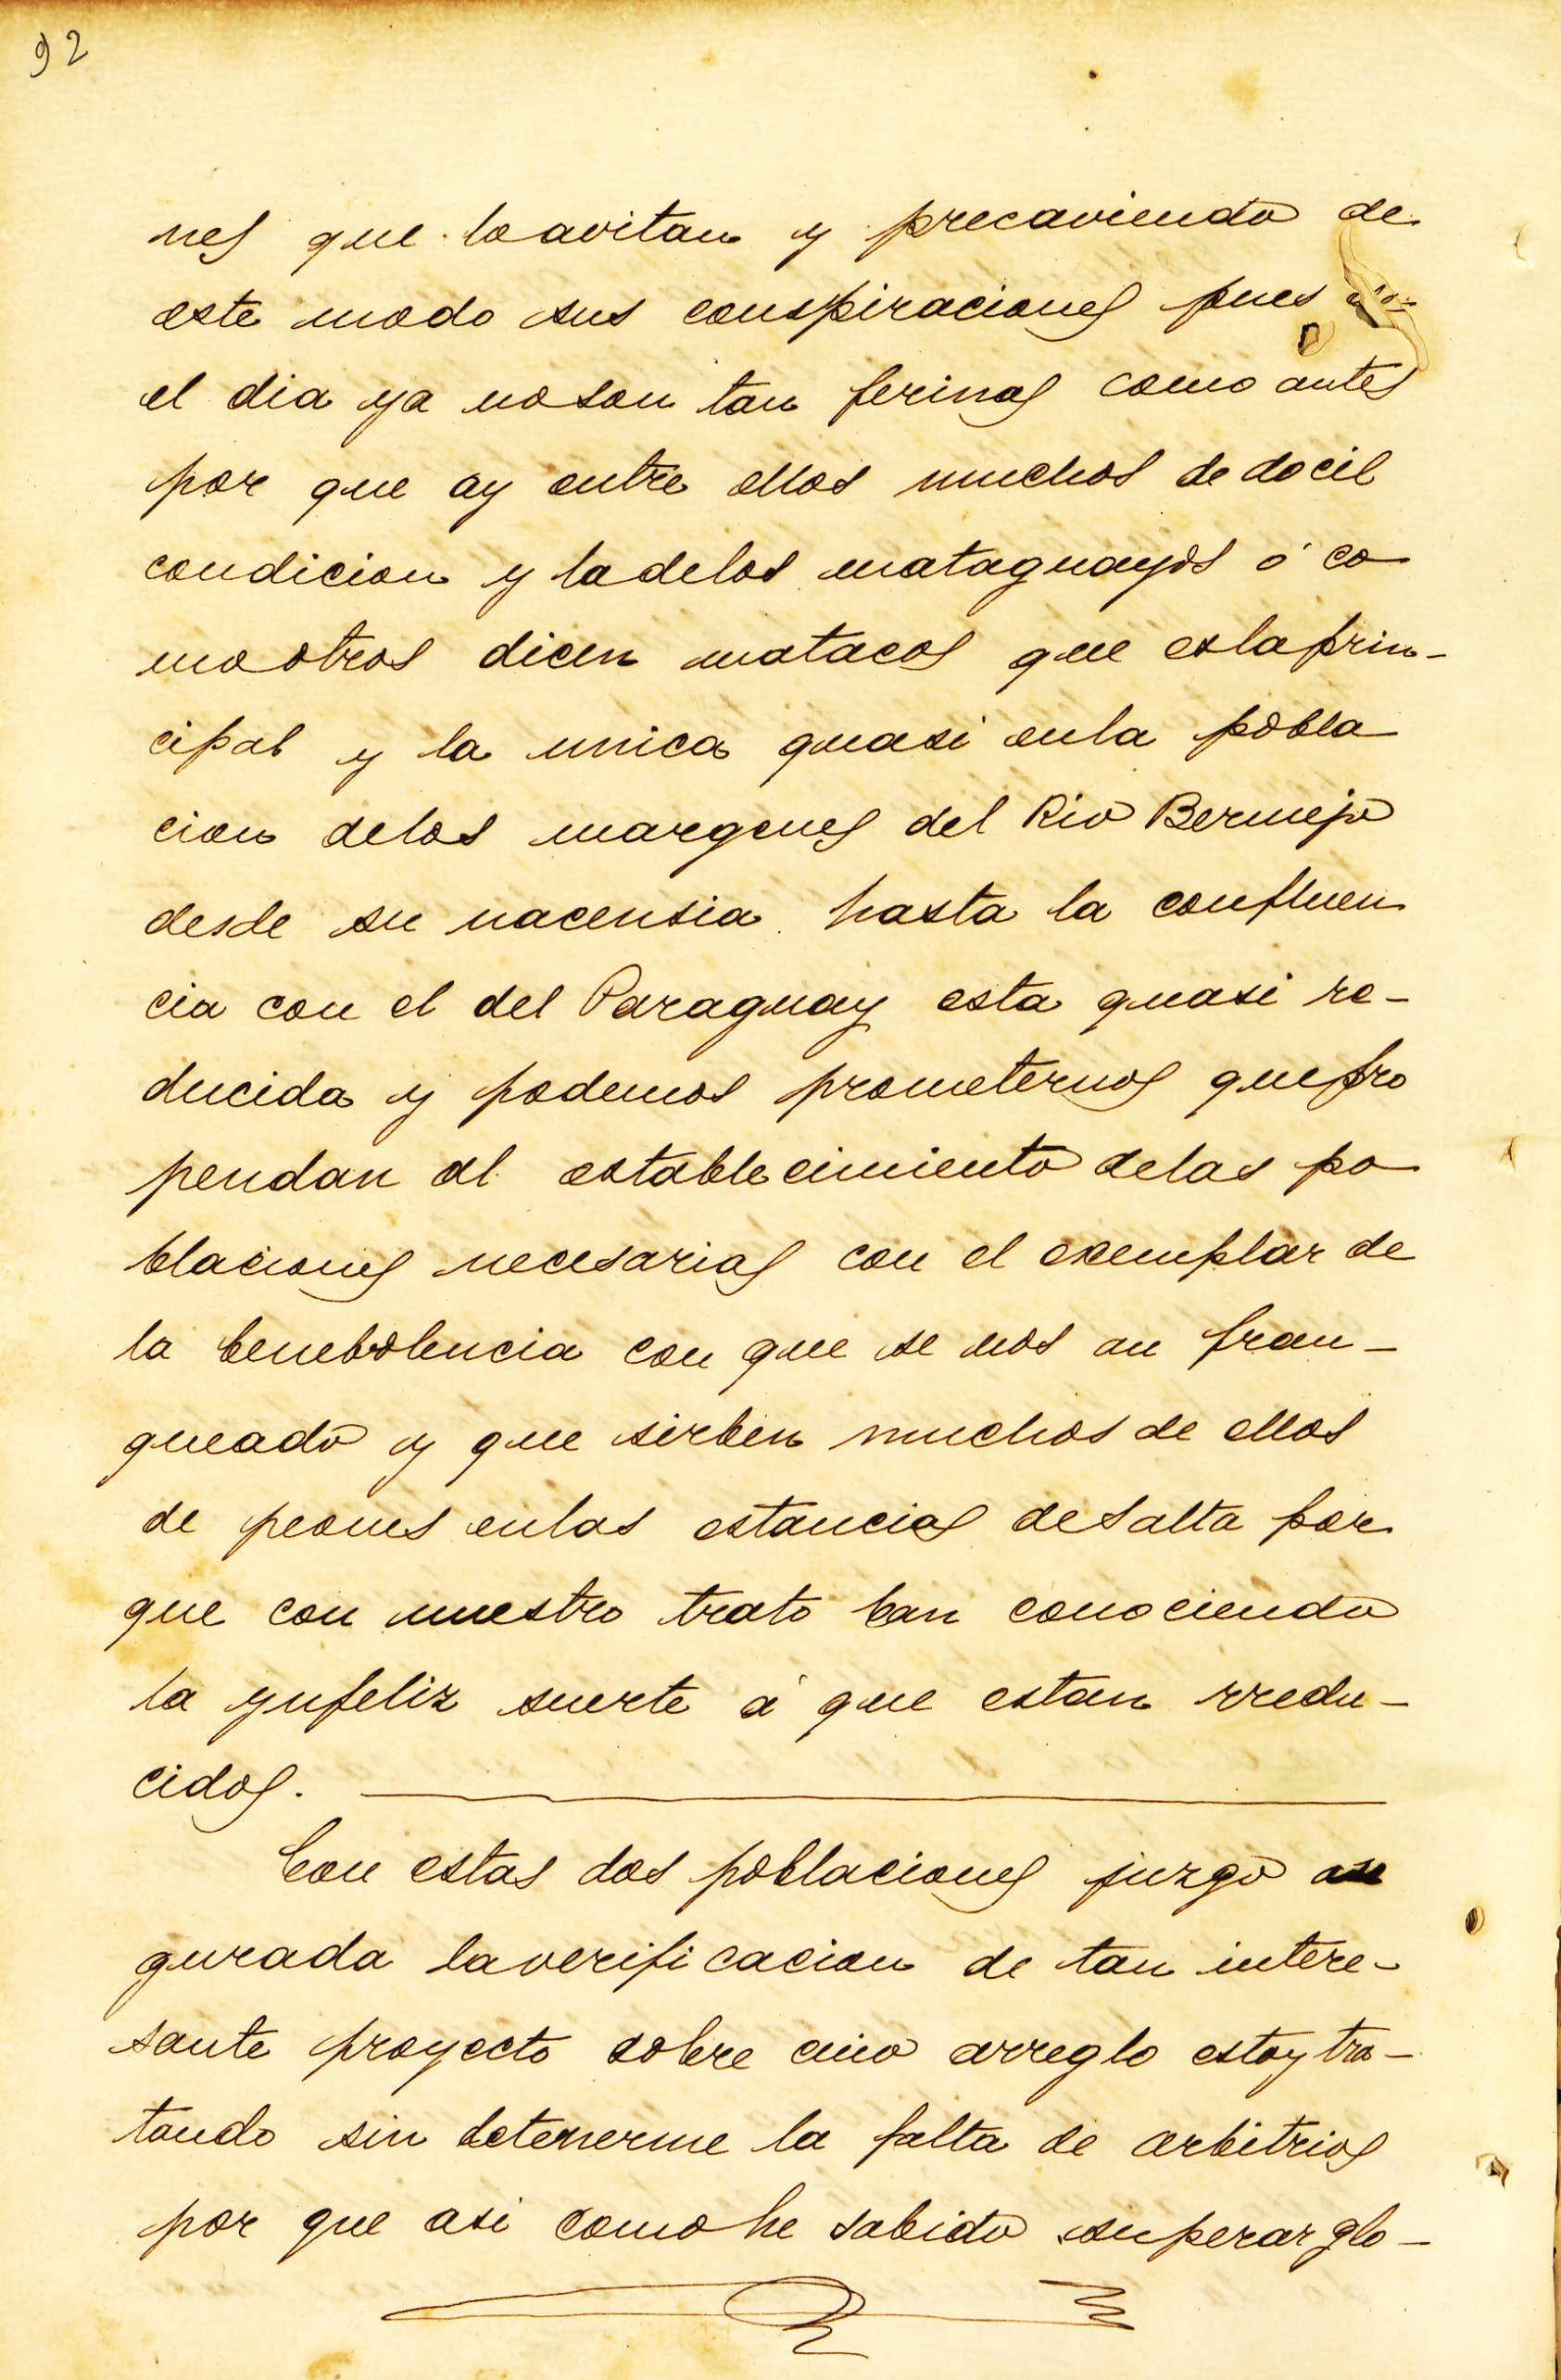 92
nes que loavitan y precaviendo de
este modo sus conspiraciones pues
el dia ya noson tan ferinas como antes
por que ay entre ellos muchos de docil
condicion y ladelos mataguayos ó co
mootros dicen matacos que eslaprin-
cipal y la unica quasi enla pobla
cion delos margenes del Rio Bermejo
desde su nacensia hasta la confluen
cia con el del Paraguay esta quasi re-
ducida y podemos prometernos quepro
pendan al establecimiento delas po
blaciones necesarias con el exemplar de
la benebolencia con que se nos an fran-
queado y que sirben muchos de ellos
de peones enlas estancias deSalta por
que con nuestro trato ban conociendo
la ynfeliz suerte á que estan rredu-
cidos.
Con estas dos poblaciones juzgo ase
gurada laverificacion de tan intere-
sante proyecto sobre cuio arreglo estoy tra-
tando sin detenerme la falta de arbitrios
por que asi como he sabido superar glo-